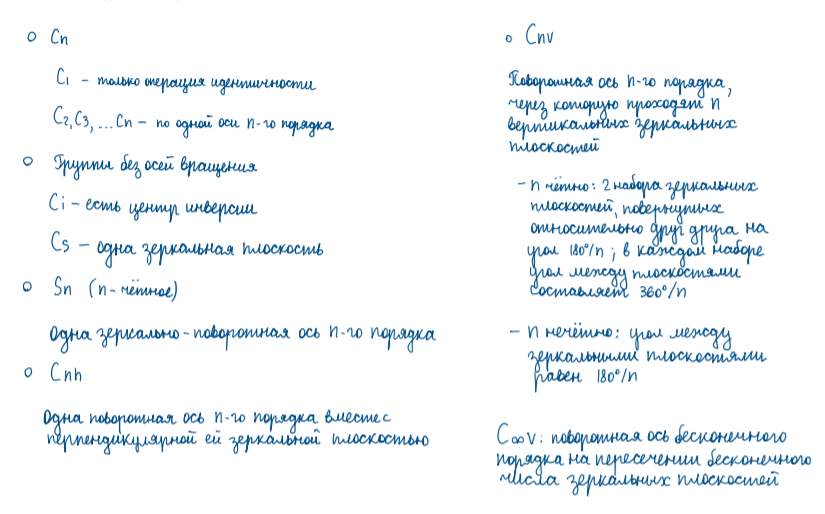 Cn
C1 – только операция идентичности
C2, C3, ... Cn – по одной оси n-го порядка
Группы без осей вращения
Ci – есть центр инверсии
Cs – одна зеркальная плоскость
Sn (n-чётное)
Одна зеркально-поворотная ось n-го порядка
Cnh
Одна поворотная ось n-го порядка вместе с
перпендикулярной ей зеркальной плоскостью
Cnv
Поворотная ось n-го порядка,
через которую проходят n
вертикальных зеркальных
плоскостей
– n чётно: 2 набора зеркальных
плоскостей, повернутых
относительно друг друга на
угол 180°/n ; в каждом наборе
угол между плоскостями
составляет 360°/n
– n нечётно: угол между
зеркальными плоскостями
равен 180°/n
C∞v: поворотная ось бесконечного
порядка на пересечении бесконечного
числа зеркальных плоскостей